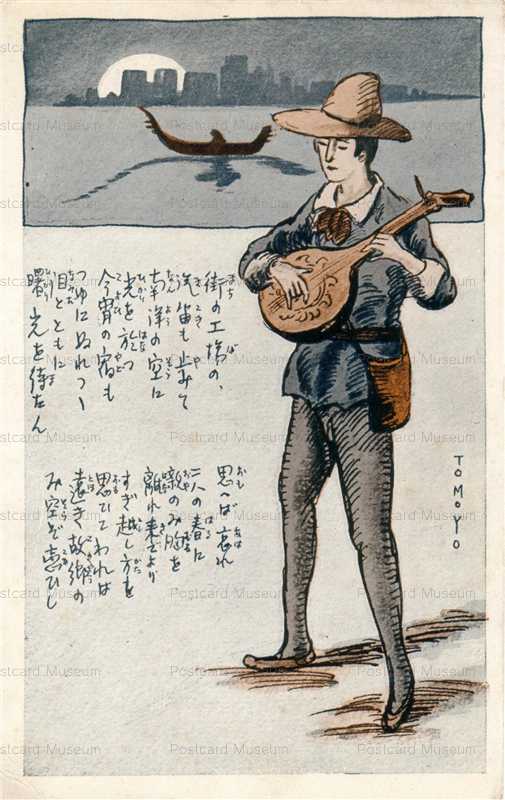 街の工場の、
汽笛も止みて
南洋の空に
光を放つ
今宵の宿も
つゆにぬれつゝ
泪とともに
曙の光を待たん
思へば哀れ
二人の春に
親のみ胸を
離れ来てより
すぎ越し方を
思ひてわれは
遠き故郷の
み空ぞ恋ひし
TOMOYO
Postcard Museum